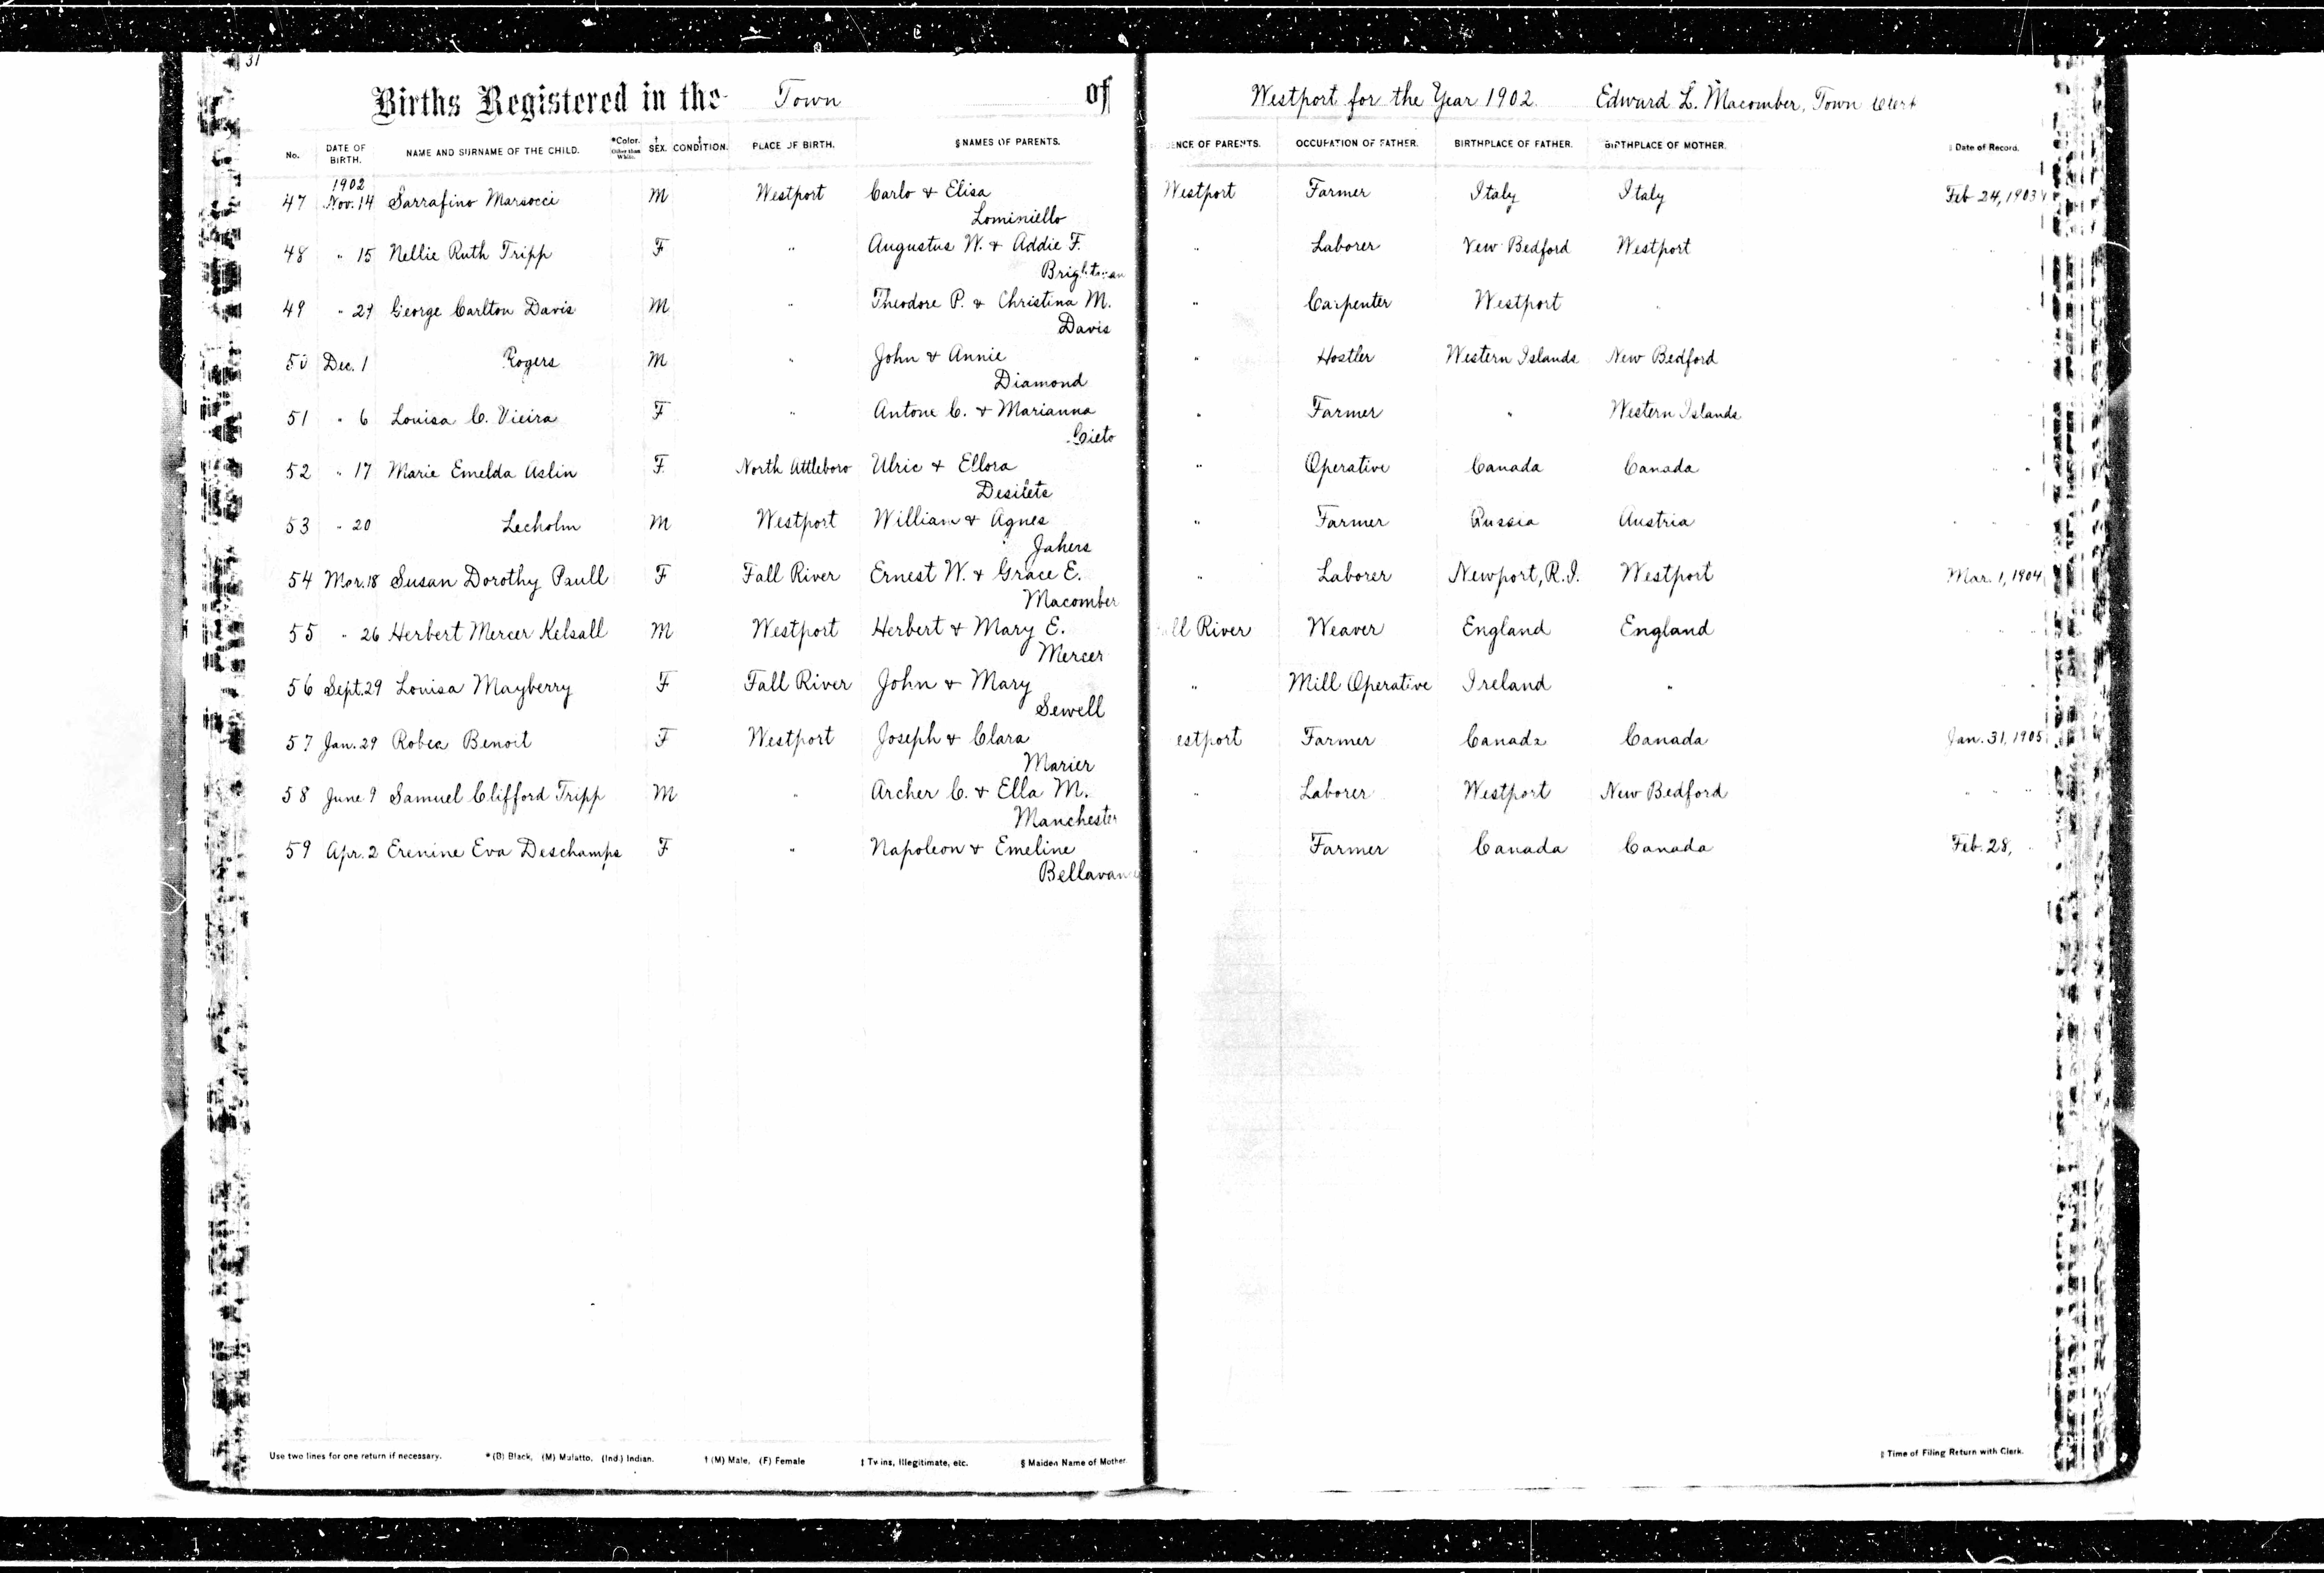 31
Births Registered in the Town of Westport for the Year 1902. Edward L. Macomber, Town Clerk
No. DATE OF BIRTH. NAME AND SURNAME OF THE CHILD. *Color. Other than White. † SEX. ‡ CONDITION. PLACE OF BIRTH. § NAMES OF PARENTS. ENCE OF PARENTS. OCCUPATION OF FATHER. BIRTHPLACE OF FATHER. BIRTHPLACE OF MOTHER. ‖ Date of Record.
1902
47 Nov. 14 Sarrafino Marsocci M Westport Carlo & Elisa Westport Farmer Italy Italy Feb 24, 1903
Lominiello
48 " 15 Nellie Ruth Tripp F " Augustus W. & Addie F. " Laborer New Bedford Westport " "
Brightman
49 " 29 George Carlton Davis M " Theodore P. & Christina M. " Carpenter Westport "
Davis
50 Dec. 1 Rogers M " John & Annie " Hostler Western Islands New Bedford " "
Diamond
51 " 6 Louisa C. Vieira F " Antone C. & Marianna " Farmer " Western Islands
52 " 17 Marie Emelda Aslin F North Attleboro Ulric & Ellora " Operative Canada Canada " "
Desilets
53 " 20 Lecholm M Westport William & Agnes " Farmer Russia Austria " "
Jahers
54 Mar. 18 Susan Dorothy Paull F Fall River Ernest W. & Grace E. " Laborer Newport, R.I. Westport Mar. 1, 1904
Macomber
55 " 26 Herbert Mercer Kelsall M Westport Herbert & Mary E. ll River Weaver England England " "
Mercer
56 Sept. 29 Louisa Mayberry F Fall River John & Mary " Mill Operative Ireland " "
Sewell
57 Jan. 29 Robea Benoit F Westport Joseph & Clara estport Farmer Canada Canada Jan. 31, 1905
Marier
58 June 9 Samuel Clifford Tripp M " Archer C. & Ella M. " Laborer Westport New Bedford " " "
Manchester
59 Apr. 2 Erenine Eva Deschamps F " Napoleon & Emeline " Farmer Canada Canada Feb. 28, "
Bellavance
Use two lines for one return if necessary. * (B) Black, (M) Mulatto, (Ind.) Indian. † (M) Male, (F) Female ‡ Twins, Illegitimate, etc. § Maiden Name of Mother. ‖ Time of Filing Return with Clerk.